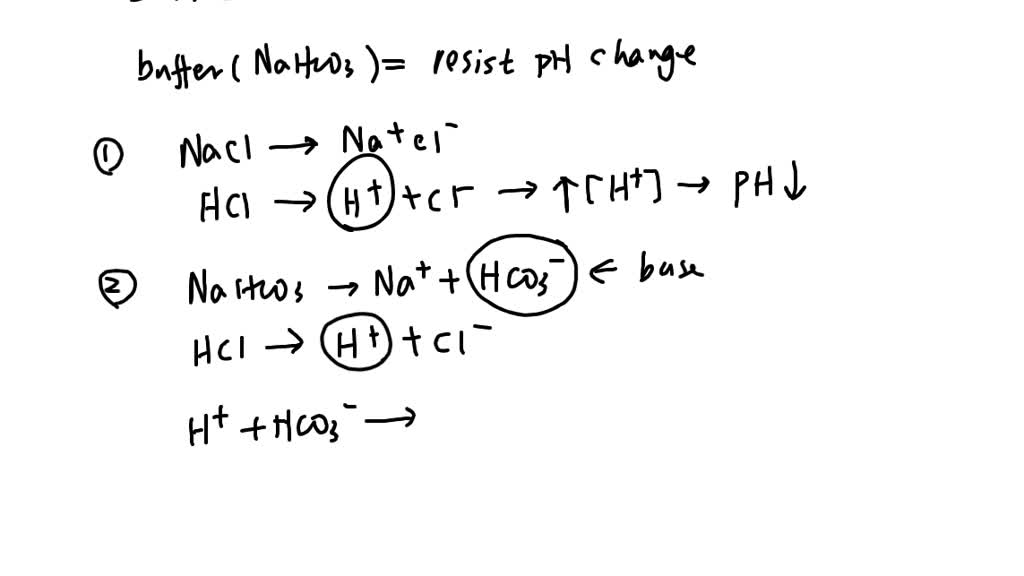 buffer (NaHCO3) = resist pH change
① NaCl → Na+ Cl-
HCl → H+ + Cl- → ↑[H+] → pH↓
② NaHCO3 → Na+ + HCO3- ← base
HCl → H+ + Cl-
H+ + HCO3- →